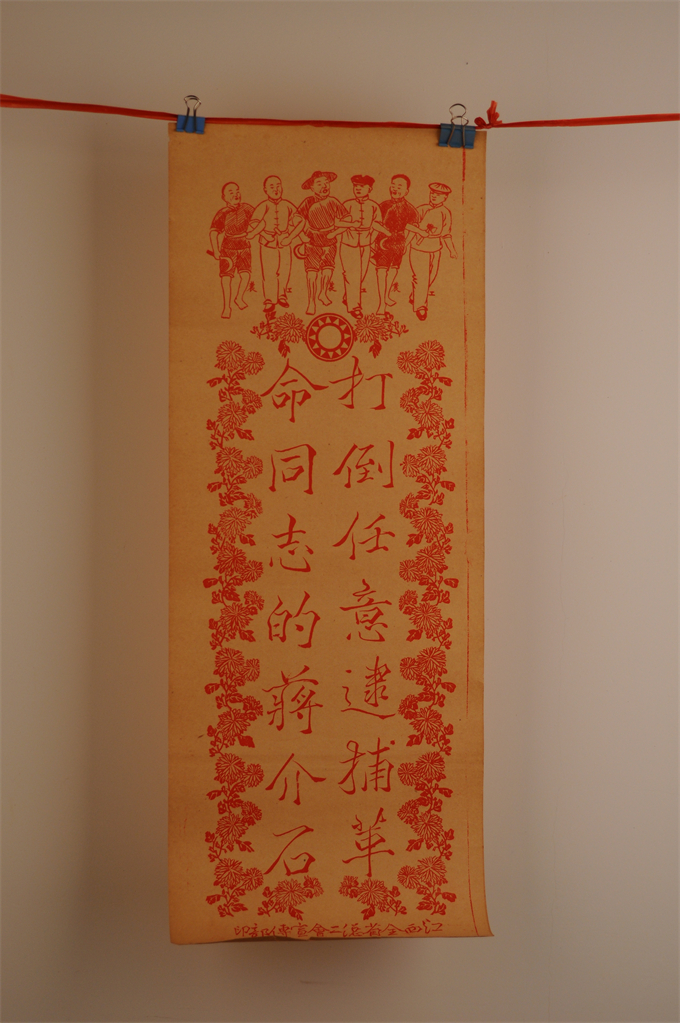 打倒任意逮捕革
命同志的蔣介石
江西全省總工會宣傳部印
農
工
農
工